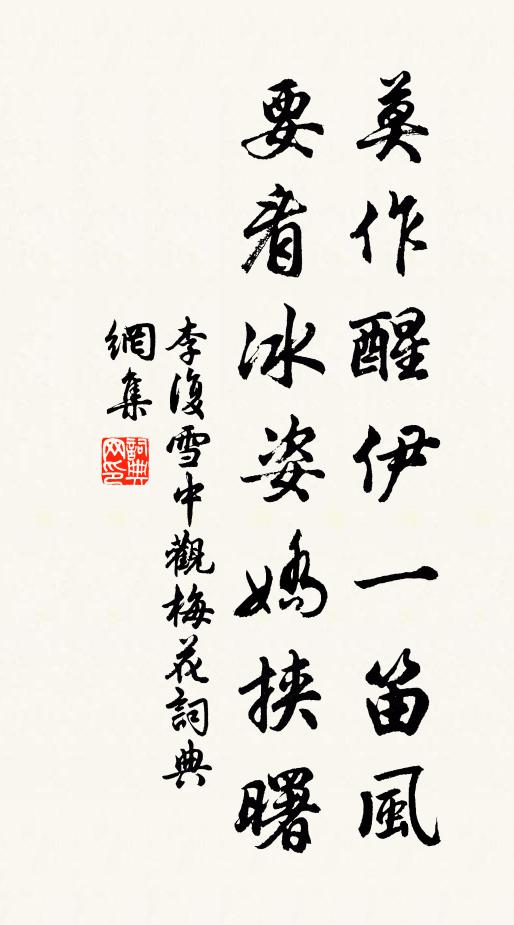 莫作醒伊一笛風
要看冰姿嬌挾曙
李復雪中觀梅花詞典
網集
詞典
网印